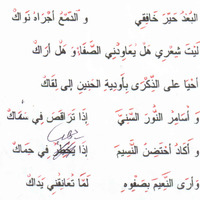 البُعْدُ حَيَّرَ خَافِقِي و الدَّمْعُ أجْرَاهُ نَوَاكْ
لَيْتَ شِعْرِي هَلْ يُعَاوِدُنِي الصَّفَا وَ هَلْ أرَاكْ
أحْيَا على الذِّكْرَى بِأَودِيةِ الحَنِينِ إلى لِقَاكْ
و أُسَامِرُ النُّورَ السَّنِيَّ إذَا تَرَاقَصَ فِي سَمَاكْ
و أكَادُ أحْتَضِنُ النَّسِيمَ إذَا يَخْطُرُ فِي حِمَاكْ
وَأرَى النَّعِيمَ بِصَفْوِهِ لَمَّا تُعَانِقُنِي يَدَاكْ